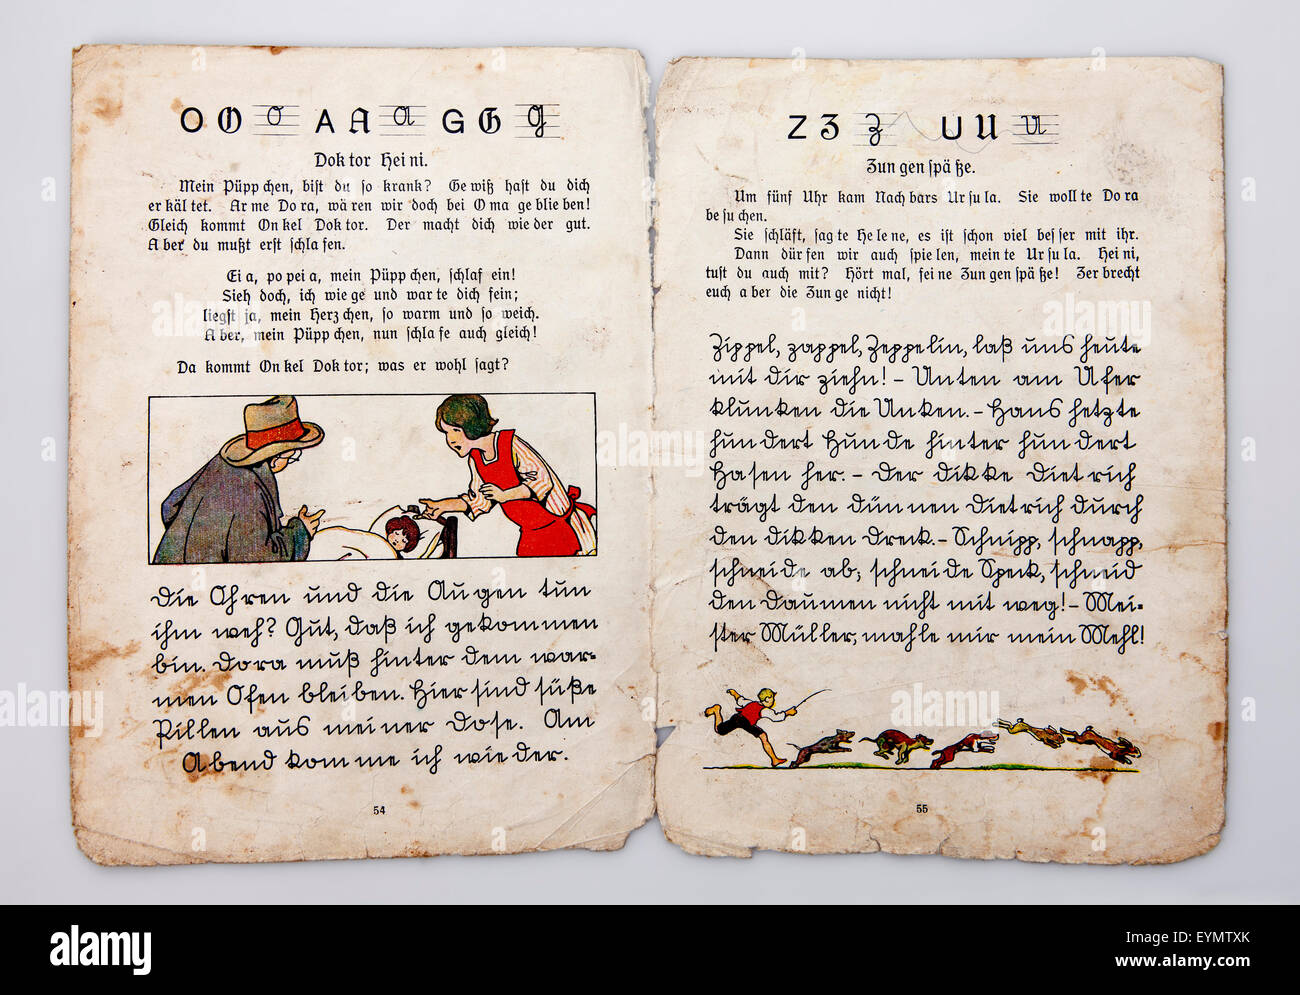 O O O A A A G G G
Dok tor Hei ni.
Mein Püpp chen, bist du so krank? Ge wiß hast du dich
er käl tet. Ar me Do ra, wä ren wir doch bei O ma ge blie ben!
Gleich kommt On kel Dok tor. Der macht dich wie der gut.
A ber du mußt erst schla fen.
Ei a, po pei a, mein Püpp chen, schlaf ein!
Sieh doch, ich wie ge und war te dich fein;
liegst ja, mein Herz chen, so warm und so weich.
A ber, mein Püpp chen, nun schla fe auch gleich!
Da kommt On kel Dok tor; was er wohl sagt?
Die Oh ren und die Au gen tun
ihm weh? Gut, daß ich ge kom men
bin. Do ra muß hin ter dem war-
men O fen blei ben. Hier sind sü ße
Pil len aus mei ner Do se. Am
A bend kom me ich wie der.
54
Z Z Z U U U
Zun gen spä ße.
Um fünf Uhr kam Nach bars Ur su la. Sie woll te Do ra
be su chen.
Sie schläft, sag te He le ne, es ist schon viel bes ser mit ihr.
Dann dür fen wir auch spie len, mein te Ur su la. Hei ni,
tust du auch mit? Hört mal, fei ne Zun gen spä ße! Zer brecht
euch a ber die Zun ge nicht!
Zippel, zappel, Zeppelin, laß uns heute
mit dir ziehn! – Un ten am U fer
klun ken die Un ken. – Hans hetz te
hun dert Hun de hin ter hun dert
Ha sen her. – Der dik ke Diet rich
trägt den dün nen Diet rich durch
den dik ken Dreck. – Schnipp, schnapp,
schnei de ab; schnei de Speck, schneid
den Dau men nicht mit weg! – Mei-
ster Mül ler, mah le mir mein Mehl!
55
alamy
Image ID: EYMTXK
www.alamy.com